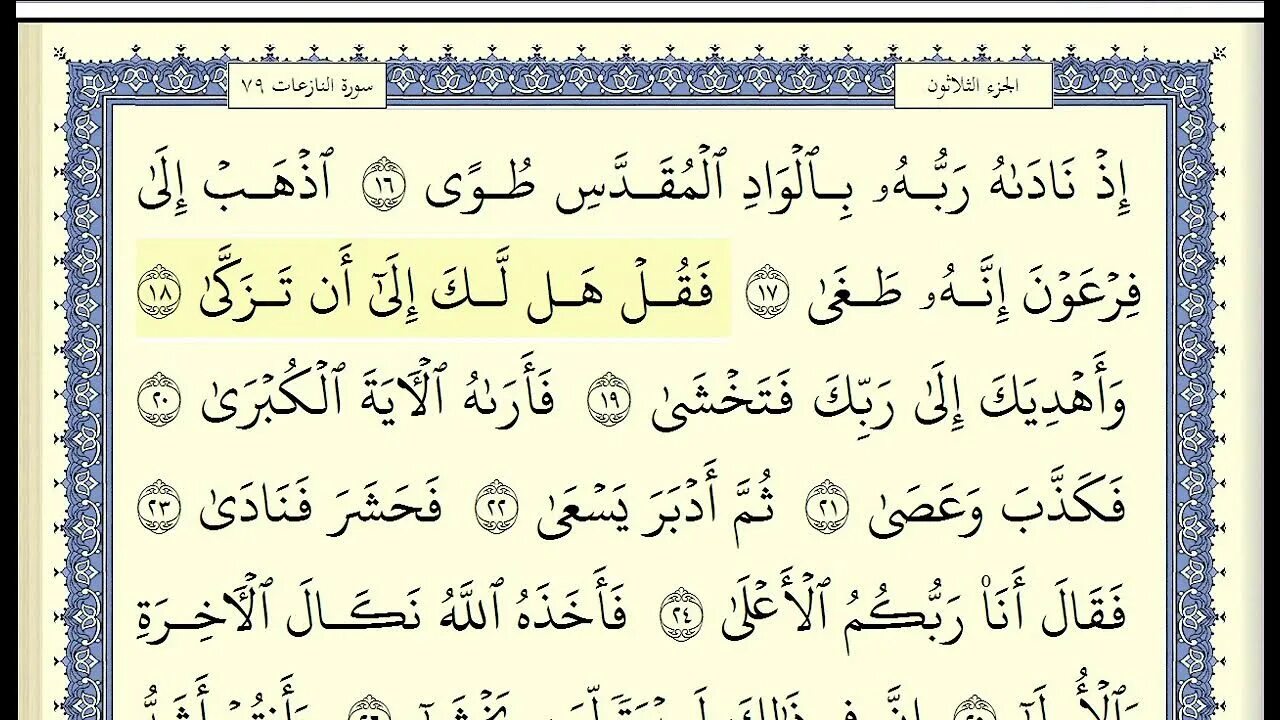 الجزء الثلاثون
سورة النازعات ٧٩
إِذْ نَادَىٰهُ رَبُّهُۥ بِٱلْوَادِ ٱلْمُقَدَّسِ طُوًى ١٦ ٱذْهَبْ إِلَىٰ
فِرْعَوْنَ إِنَّهُۥ طَغَىٰ ١٧ فَقُلْ هَل لَّكَ إِلَىٰٓ أَن تَزَكَّىٰ ١٨
وَأَهْدِيَكَ إِلَىٰ رَبِّكَ فَتَخْشَىٰ ١٩ فَأَرَىٰهُ ٱلْـَٔايَةَ ٱلْكُبْرَىٰ ٢٠
فَكَذَّبَ وَعَصَىٰ ٢١ ثُمَّ أَدْبَرَ يَسْعَىٰ ٢٢ فَحَشَرَ فَنَادَىٰ ٢٣
فَقَالَ أَنَا۠ رَبُّكُمُ ٱلْأَعْلَىٰ ٢٤ فَأَخَذَهُ ٱللَّهُ نَكَالَ ٱلْـَٔاخِرَةِ